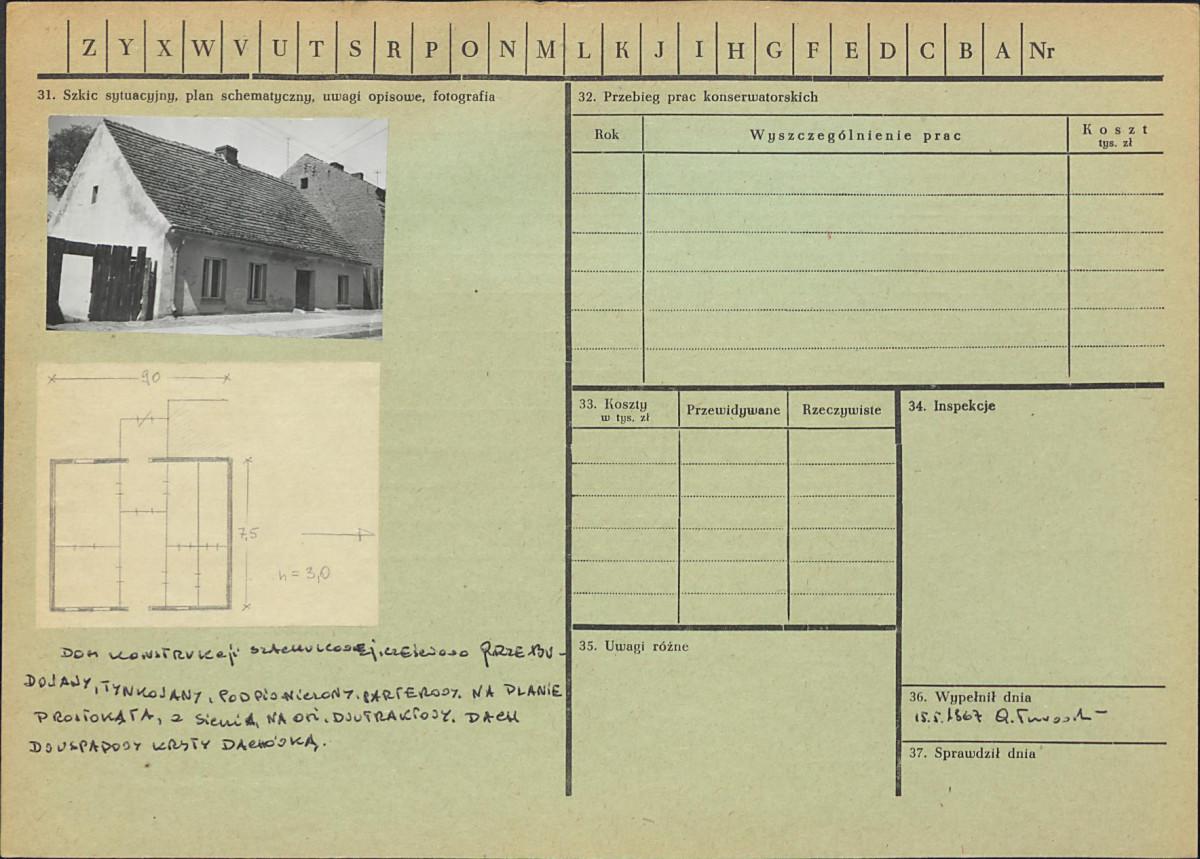 Z Y X W V U T S R P O N M L K J I H G F E D C B A Nr
31. Szkic sytuacyjny, plan schematyczny, uwagi opisowe, fotografia
90
7,5
h = 3,0
DOM KONSTRUKCJI SZACHULCOWEJ, CZĘŚCIOWO PRZEBU-
DOWANY, TYNKOWANY, PODPIWNICZONY, PARTEROWY. NA PLANIE
PROSTOKĄTA, Z SIENIĄ NA OSI. DWUTRAKTOWY. DACH
DWUSPADOWY KRYTY DACHÓWKĄ.
32. Przebieg prac konserwatorskich
Rok
Wyszczególnienie prac
Koszt
tys. zł
33. Koszty
w tys. zł
Przewidywane
Rzeczywiste
34. Inspekcje
35. Uwagi różne
36. Wypełnił dnia
15.5.1967
37. Sprawdził dnia